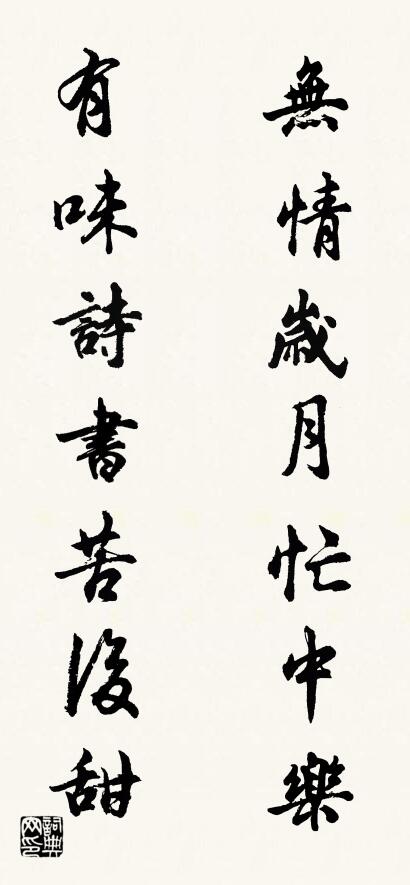 無情歲月忙中樂
有味詩書苦後甜
詞典网印